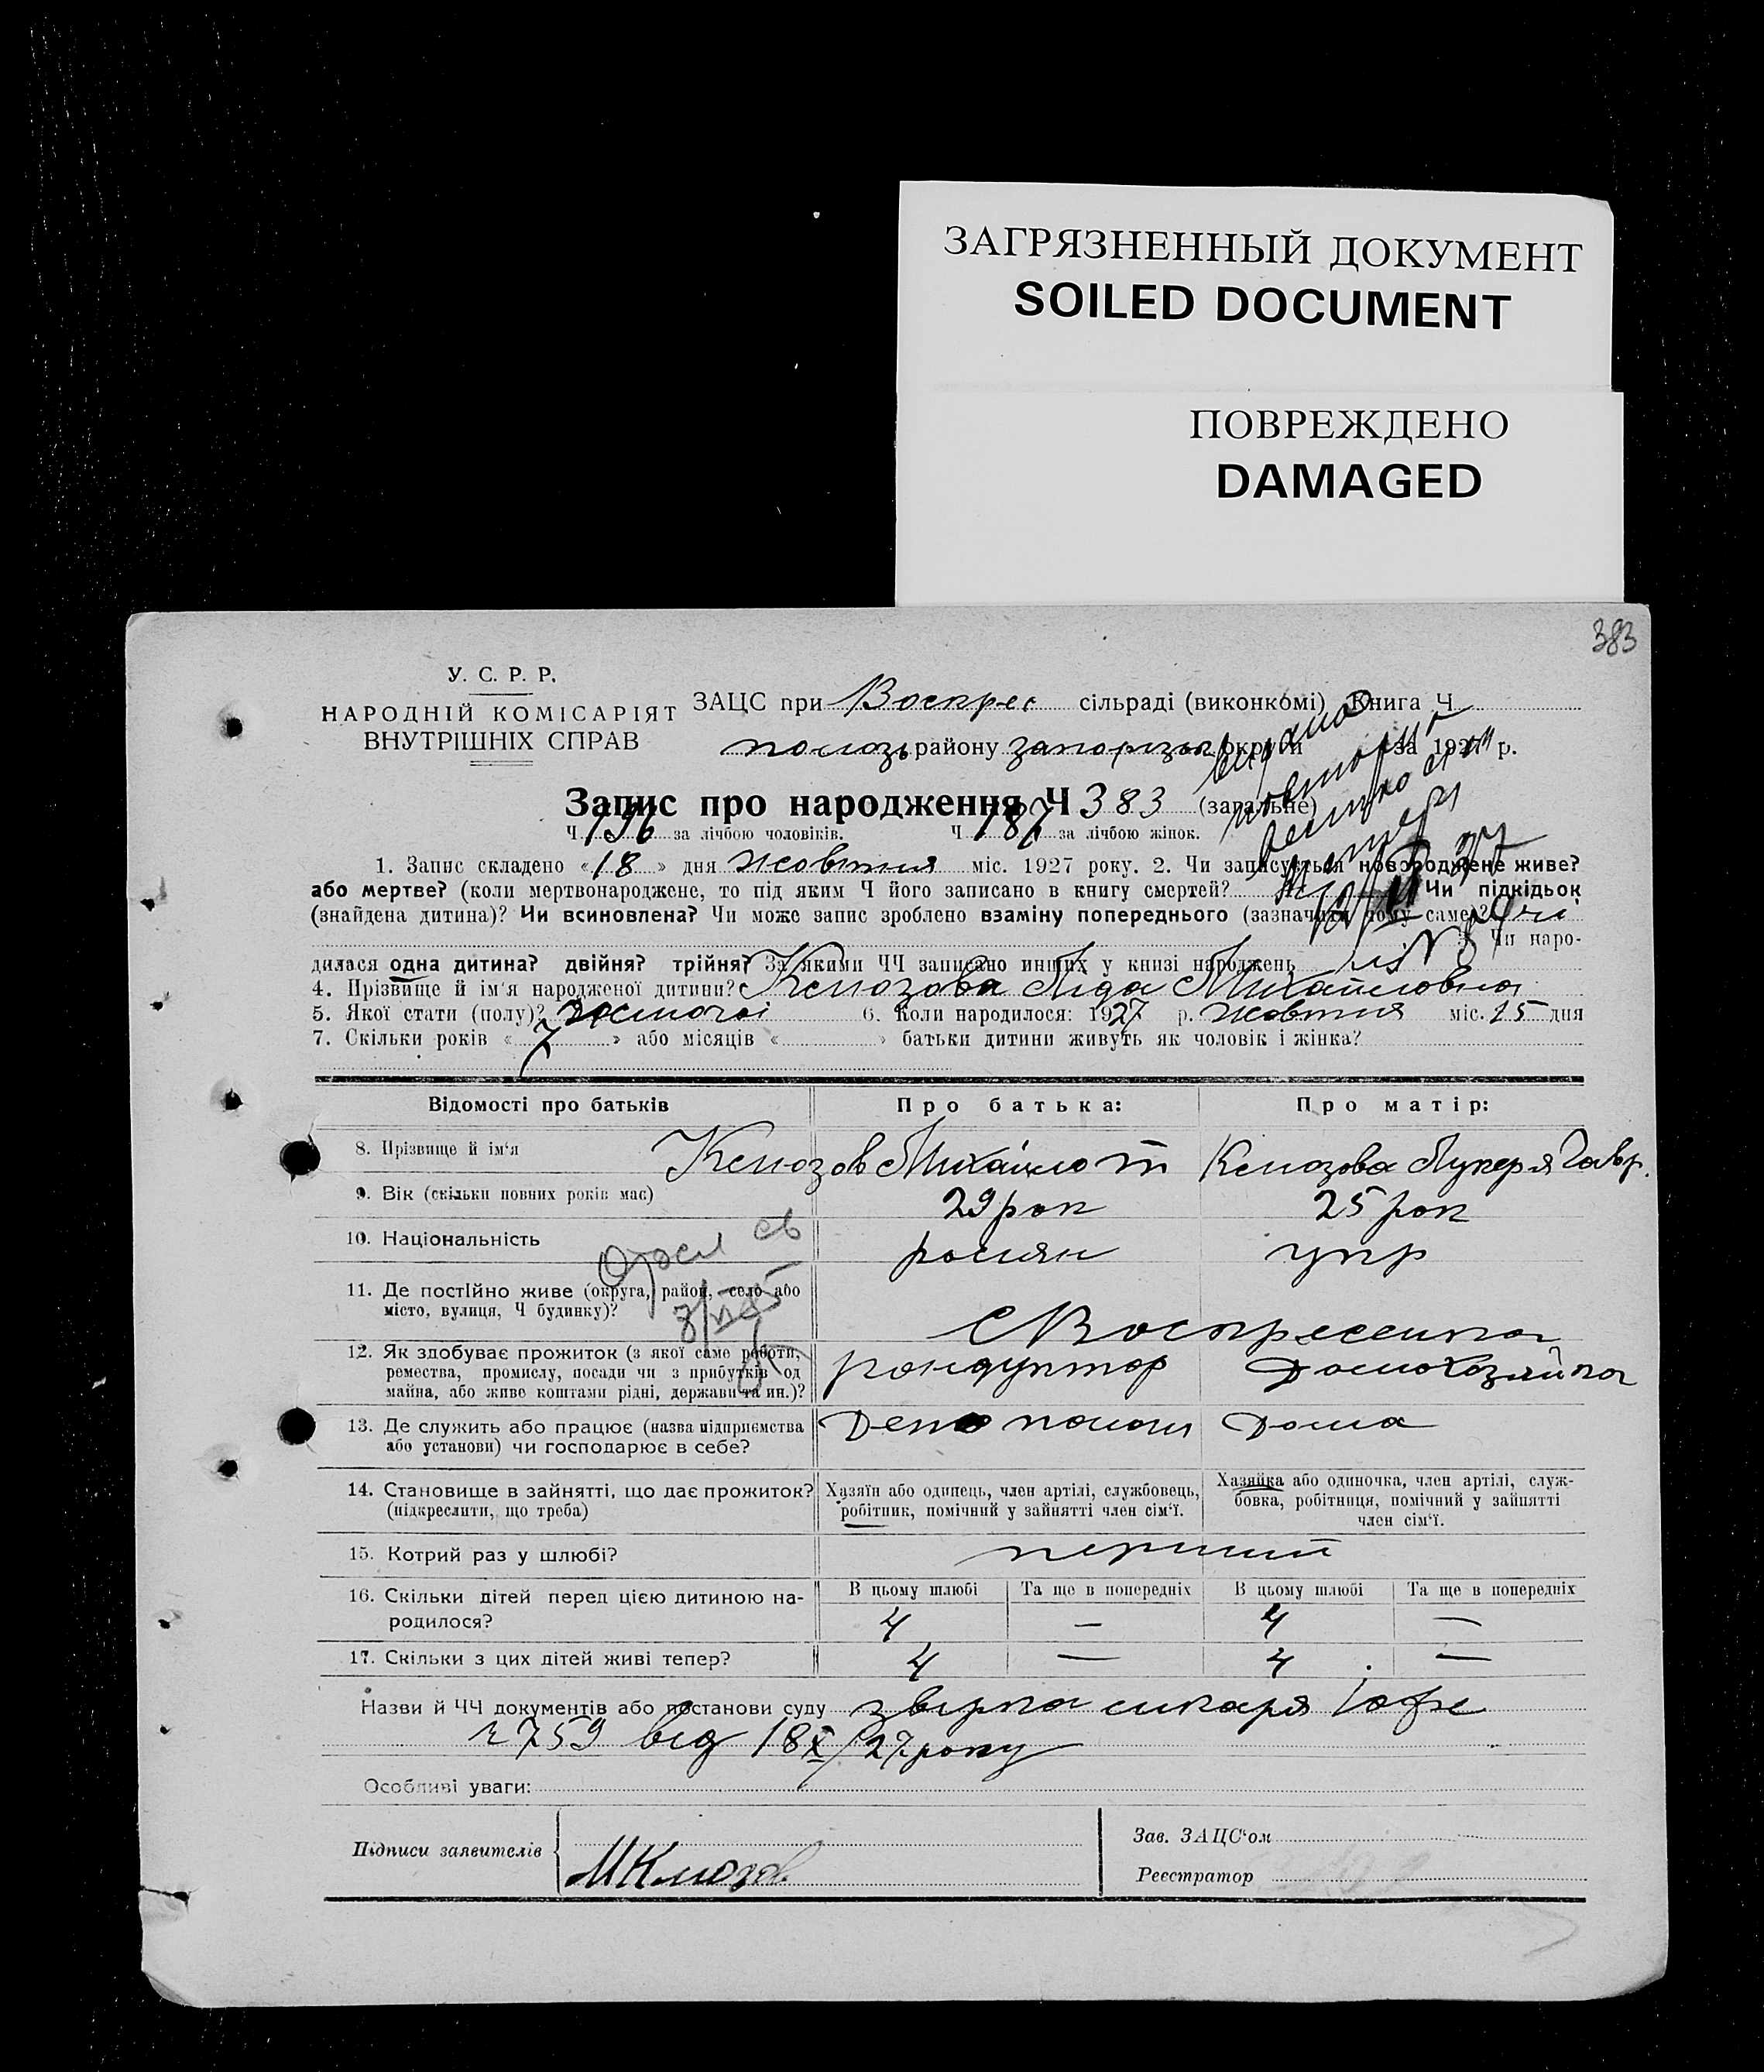 ЗАГРЯЗНЕННЫЙ ДОКУМЕНТ
SOILED DOCUMENT
ПОВРЕЖДЕНО
DAMAGED
383
У. С. Р. Р.
НАРОДНІЙ КОМІСАРІЯТ
ВНУТРІШНІХ СПРАВ
ЗАЦС при Воскрес сільраді (виконкомі) Книга Ч
району округи за 1927 р.
видано повторно
Запис про народження Ч 383 (загальне)
Ч 196 за лічбою чоловіків. Ч 187 за лічбою жінок.
1. Запис складено «18» дня жовтня міс. 1927 року. 2. Чи записується новороджене живе?
або мертве? (коли мертвонароджене, то під яким Ч його записано в книгу смертей? Чи підкідьок
(знайдена дитина)? Чи всиновлена? Чи може запис зроблено взаміну попереднього (зазначити чому саме)?
3. Чи наро-
дилася одна дитина? двійня? трійня? За якими ЧЧ записано инших у книзі народжень
4. Прізвище й ім'я народженої дитини? Клюзова Ліда Михайловна
5. Якої стати (полу)? жіночоі 6. Коли народилося: 1927 р. жовтня міс. 15 дня
7. Скільки років « 7 » або місяців « » батьки дитини живуть як чоловік і жінка?
Відомості про батьків
Про батька:
Про матір:
8. Прізвище й ім'я Клюзов Михайло Клюзова Лукеря Гавр.
9. Вік (скільки повних років має) 29 рок 25 рок
10. Національність росіян укр
11. Де постійно живе (округа, район, село або
місто, вулиця, Ч будинку)?
с Воскресенка
12. Як здобуває прожиток (з якої саме роботи,
ремества, промислу, посади чи з прибутків од
майна, або живе коштами рідні, держави та ин.)?
кондуктор Домохозяйка
13. Де служить або працює (назва підприємства
або установи) чи господарює в себе?
Депо пологи Дома
14. Становище в зайнятті, що дає прожиток?
(підкреслити, що треба)
Хазяїн або одинець, член артілі, службовець,
робітник, помічний у зайнятті член сім'ї.
Хазяйка або одиночка, член артілі, служ-
бовка, робітниця, помічний у зайнятті
член сім'ї.
15. Котрий раз у шлюбі? перший
16. Скільки дітей перед цією дитиною на-
родилося?
В цьому шлюбі Та ще в попередніх В цьому шлюбі Та ще в попередніх
4 — 4 —
17. Скільки з цих дітей живі тепер? 4 — 4 —
Назви й ЧЧ документів або постанови суду звірка Іофе
759 від 18 X/27 року
Особливі уваги:
Підписи заявителів
МКлюзов
Зав. ЗАЦС'ом
Реєстратор